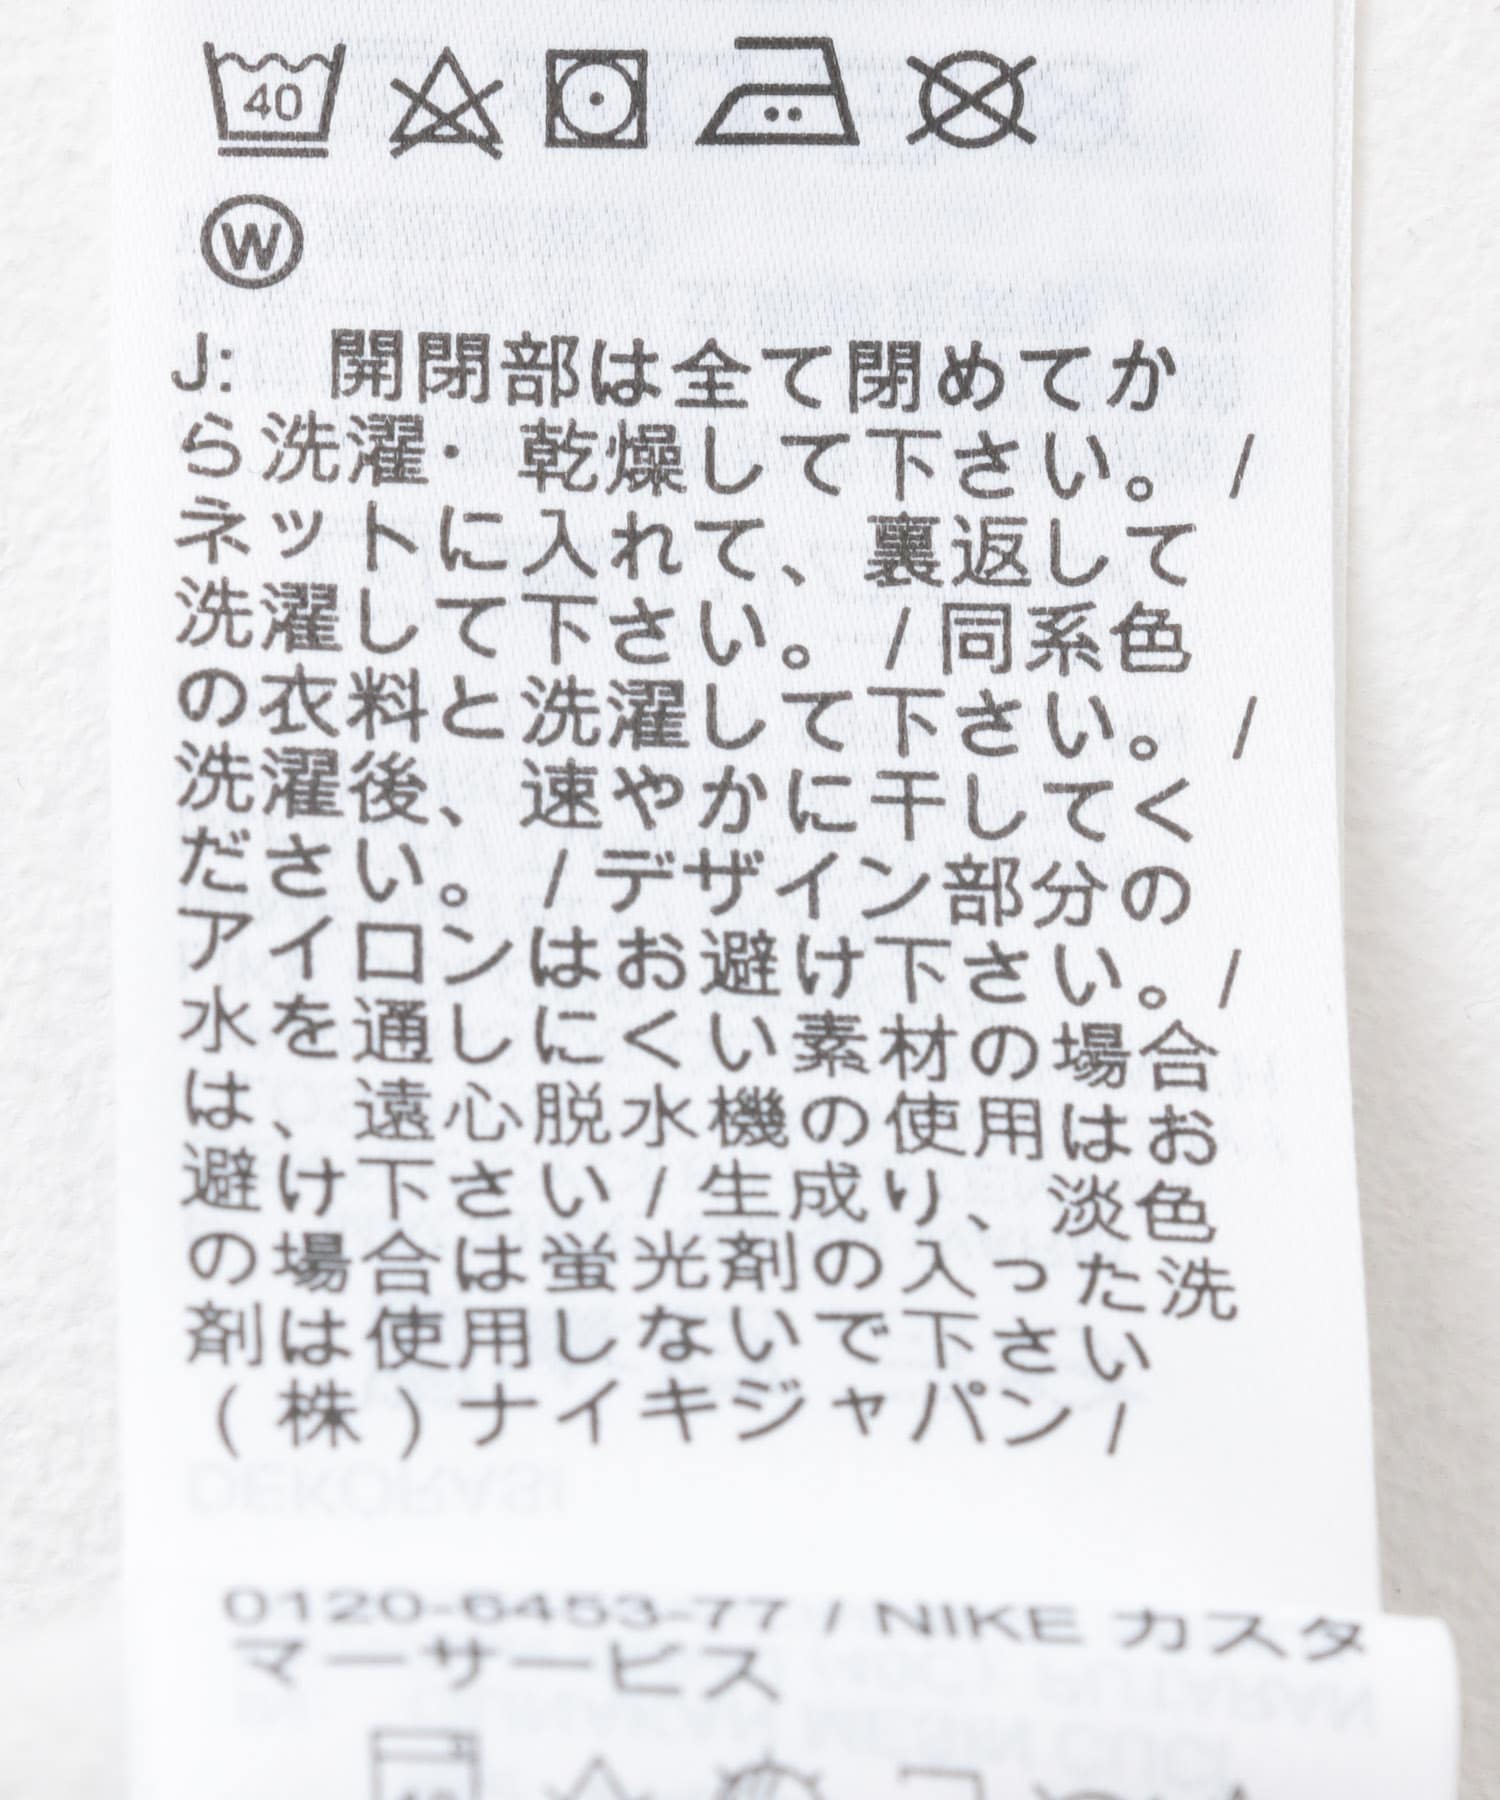 40
W
J: 開閉部は全て閉めてか
ら洗濯・乾燥して下さい。/
ネットに入れて、裏返して
洗濯して下さい。/同系色
の衣料と洗濯して下さい。/
洗濯後、速やかに干してく
ださい。/デザイン部分の
アイロンはお避け下さい。/
水を通しにくい素材の場合
は、遠心脱水機の使用はお
避け下さい/生成り、淡色
の場合は蛍光剤の入った洗
剤は使用しないで下さい
(株)ナイキジャパン/
0120-6453-77 / NIKE カスタ
マーサービス